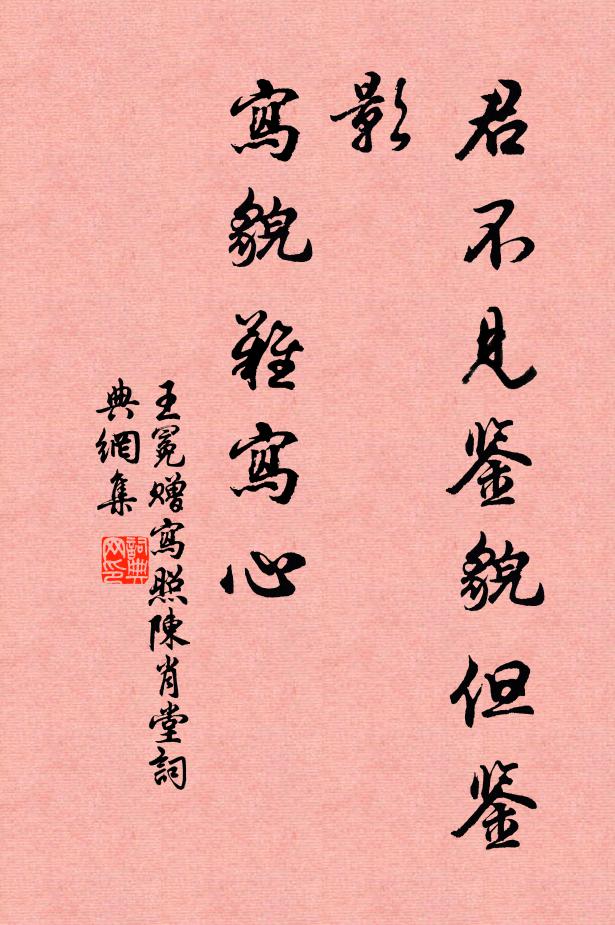 君不見鉴貌但鉴
影
寫貌難寫心
王冕赠寫照陳肖堂詞
典網集
詞典
网印